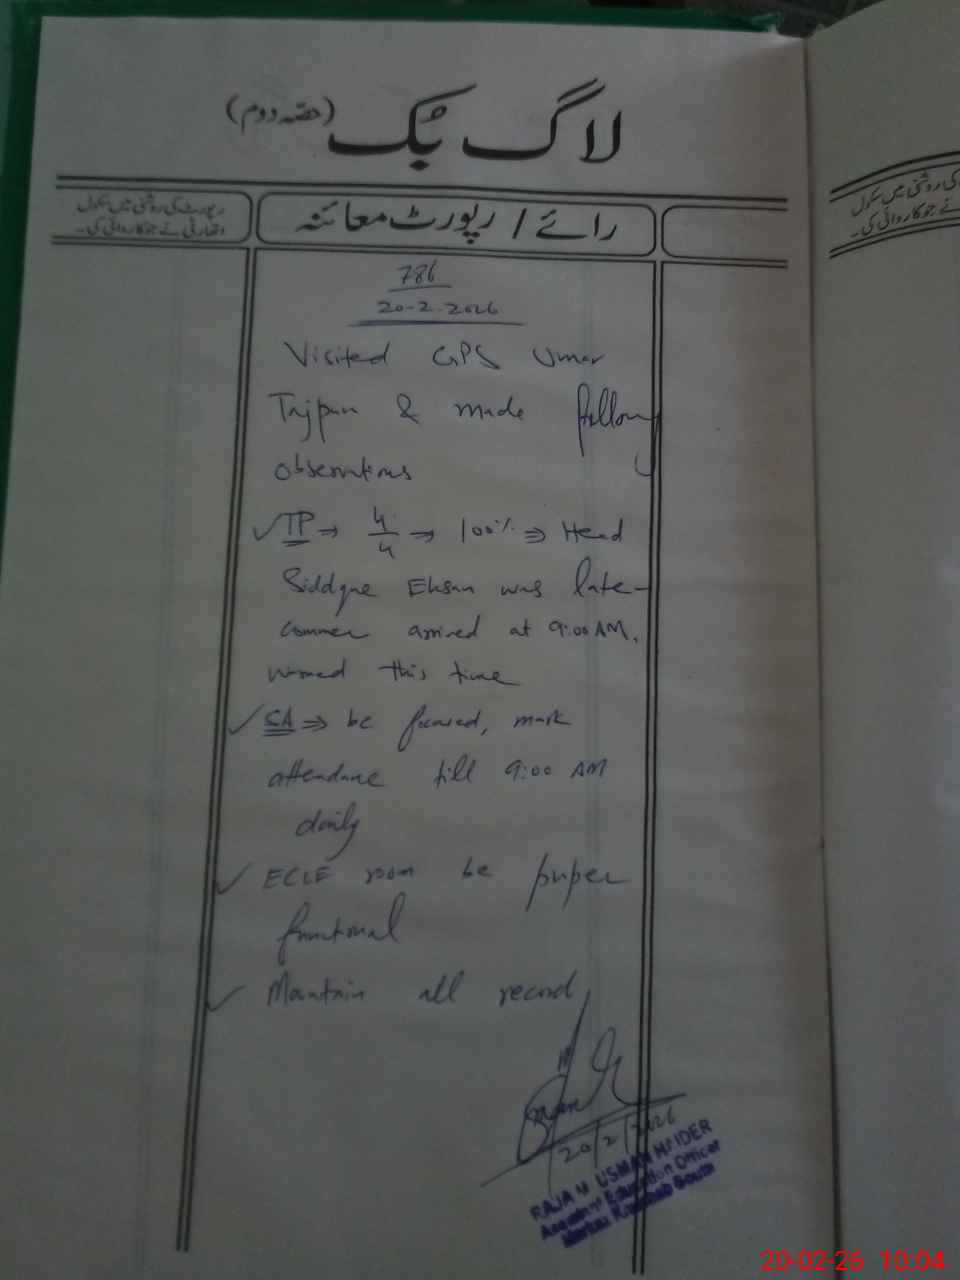 لاگ بک (حصہ دوم)
رپورٹ کی روشنی میں سکول
اتھارٹی نے جو کاروائی کی۔
رائے / رپورٹ معائنہ
کی روشنی میں سکول
نے جو کاروائی کی۔
786
20-2-2026
Visited GPS Umar
Tajpur & made following
observations
✓ TP ⇒ 4/4 ⇒ 100% ⇒ Head
Siddque Ehsan was late-
commer arrived at 9:00 AM,
warned this time
✓ SA ⇒ be focused, mark
attendance till 9:00 AM
daily
✓ ECCE room be proper
functional
✓ Maintain all record
20/2/2026
RAJA M USMAN HAIDER
Assistant Education Officer
Markaz South
20-02-26 10:04